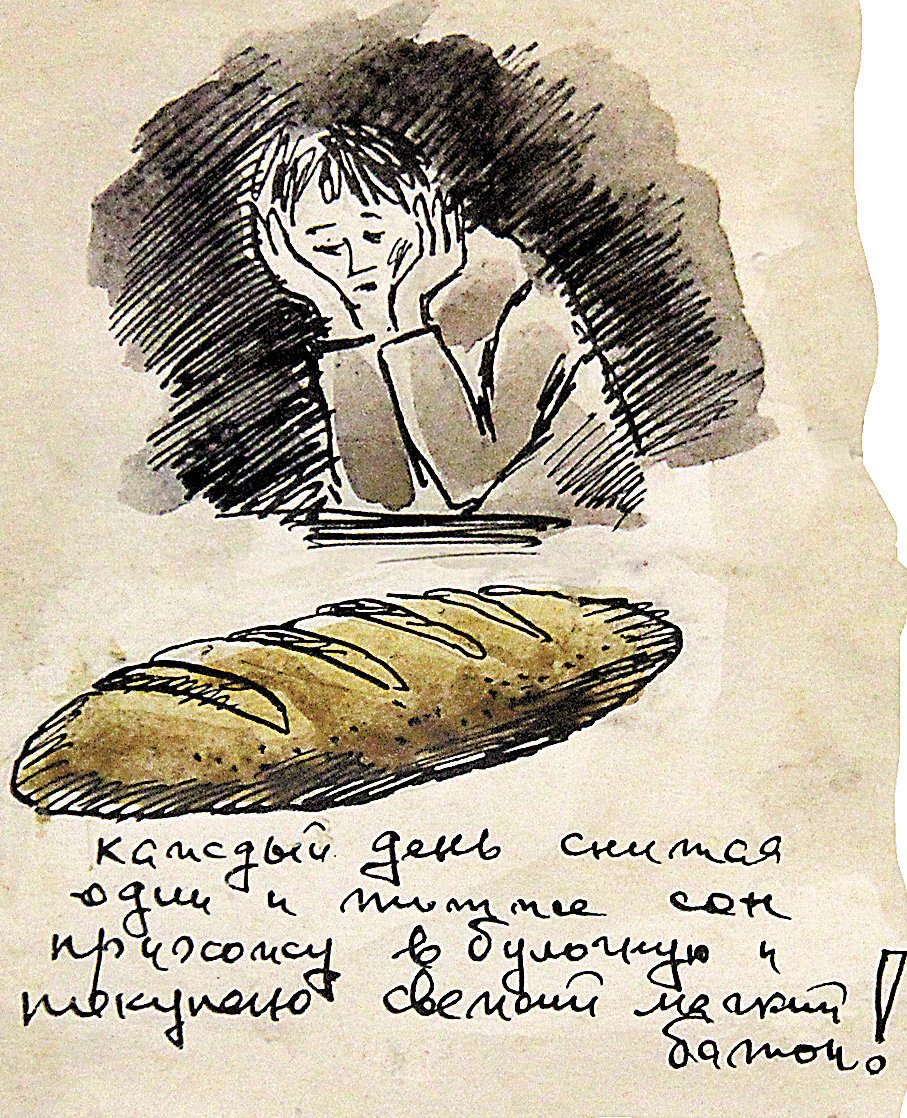 каждый день снится
один и тотже сон
прихожу в булочную и
покупаю свежий мягкий
батон!